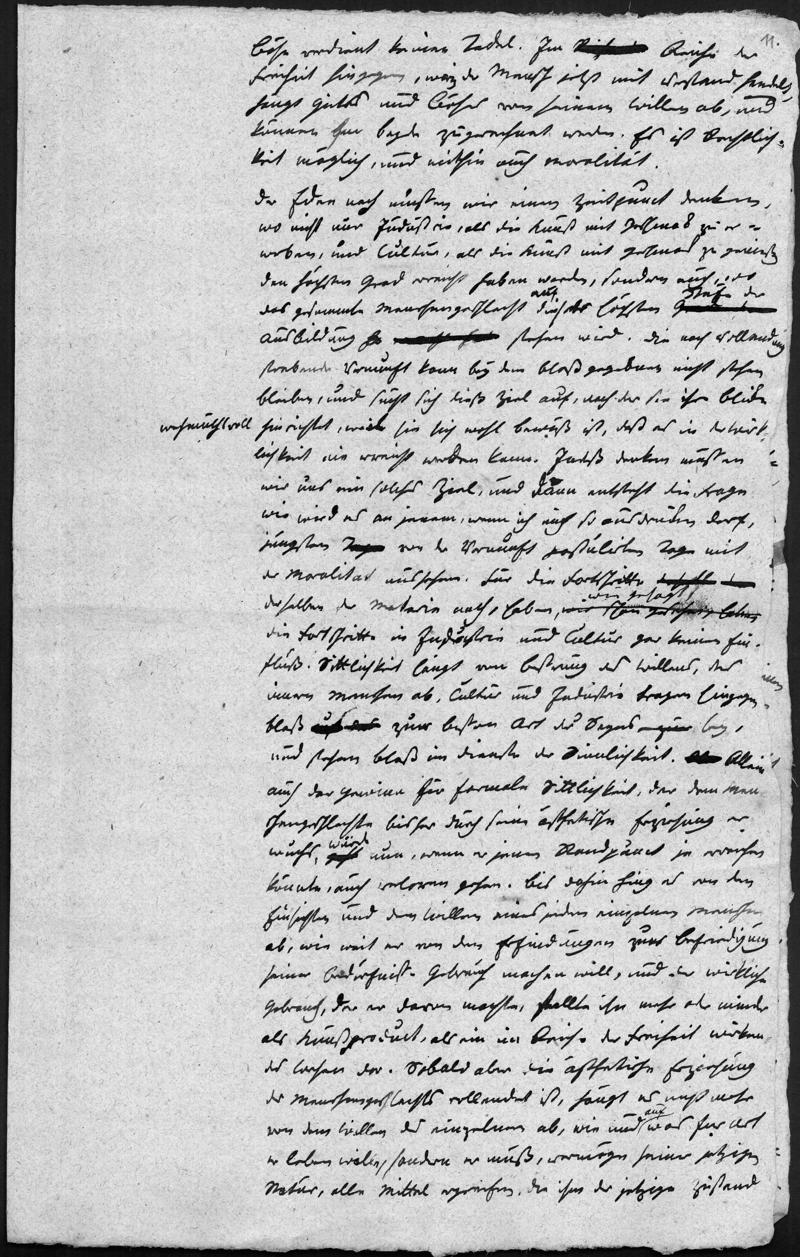 11.
böse verdient keinen Tadel. Im Reiche der
Freiheit hingegen, wo der Mensch selbst mit Verstand handelt,
hängt gutes und böses von seinem Willen ab, und
können ihm beyde zugerechnet werden. Es ist Rechtlich-
keit möglich, und mithin auch Moralität.
Der Idee nach müssen wir einen Zeitpunct denken,
wo nicht nur Industrie, als die Kunst mit Geschmack zu er-
werben, und Cultur, als die Kunst mit Geschmack zu genießen
den höchsten Grad erreicht haben werden, sondern auch, wo
das gesammte Menschengeschlecht auf dieser höchsten Stufe der
Ausbildung stehen wird. Die nach Vollendung
strebende Vernunft kann bey dem bloß gegebenen nicht stehen
bleiben, und sucht sich dieß Ziel auf, nach der sie ihre Blicke
wehmuthsvoll hinrichtet, weil sie sich wohl bewußt ist, daß es in der Wirk-
lichkeit nie erreicht werden kann. Indeß denken müssen
wir uns ein solches Ziel, und dann entsteht die Frage
wie wird es an jenem, wenn ich mich so ausdrücken darf,
jüngsten von der Vernunft postulirten Tage mit
der Moralität aussehen. Für die Fortschritte
derselben der Materie nach, haben, wie gesagt,
die Fortschritte in Industrie und Cultur gar keinen Ein-
fluß. Sittlichkeit hängt von Besserung des Willens, des
innern Menschen ab, Cultur und Industrie tragen hingegen
bloß zur besten Art des Seyns bey,
und stehen bloß im Dienste der Sinnlichkeit. Allein
auch der Gewinn für formale Sittlichkeit, der dem Men-
schengeschlechte bisher durch seine ästhetische Erziehung er-
wuchs, würde nun, wenn er jenen Standpunct je erreichen
könnte, auch verloren gehen. Bis dahin hing es von den
Einsichten und dem Willen eines jeden einzelnen Menschen
ab, wie weit er von den Erfindungen zur Befriedigung
seiner Bedürfnisse Gebrauch machen will, und der wirkliche
Gebrauch, den er davon machte, stellte ihn mehr oder minder
als Kunstproduct, als ein im Reiche der Freiheit wirken-
des Wesen dar. Sobald aber die ästhetische Erziehung
des Menschengeschlechts vollendet ist, hängt es nicht mehr
von dem Willen des einzelnen ab, wie und auf was für Art
er leben wolle, sondern er muß, vermöge seiner jetzigen
Natur, alle Mittel ergreifen, die ihm der jetzige Zustand